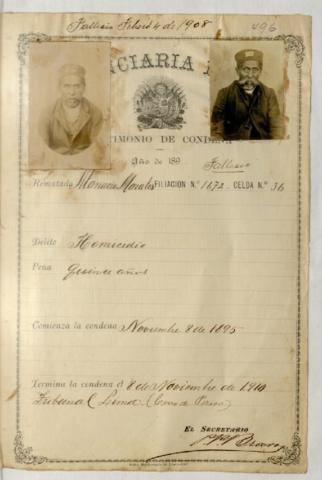 Fallecio Febero 4 de 1908
496
NCIARIA
TIMONIO DE CONDENA
Año de 189
Fallecio
Rematado Manuel Morales FILIACION N.° 1672 CELDA N.° 36
Delito Homicidio
Pena Quince años
Comienza la condena Noviembre 8 de 1895
Termina la condena el 8 de Noviembre de 1910
Tribunal Lima (Cerro de Pasco)
EL SECRETARIO